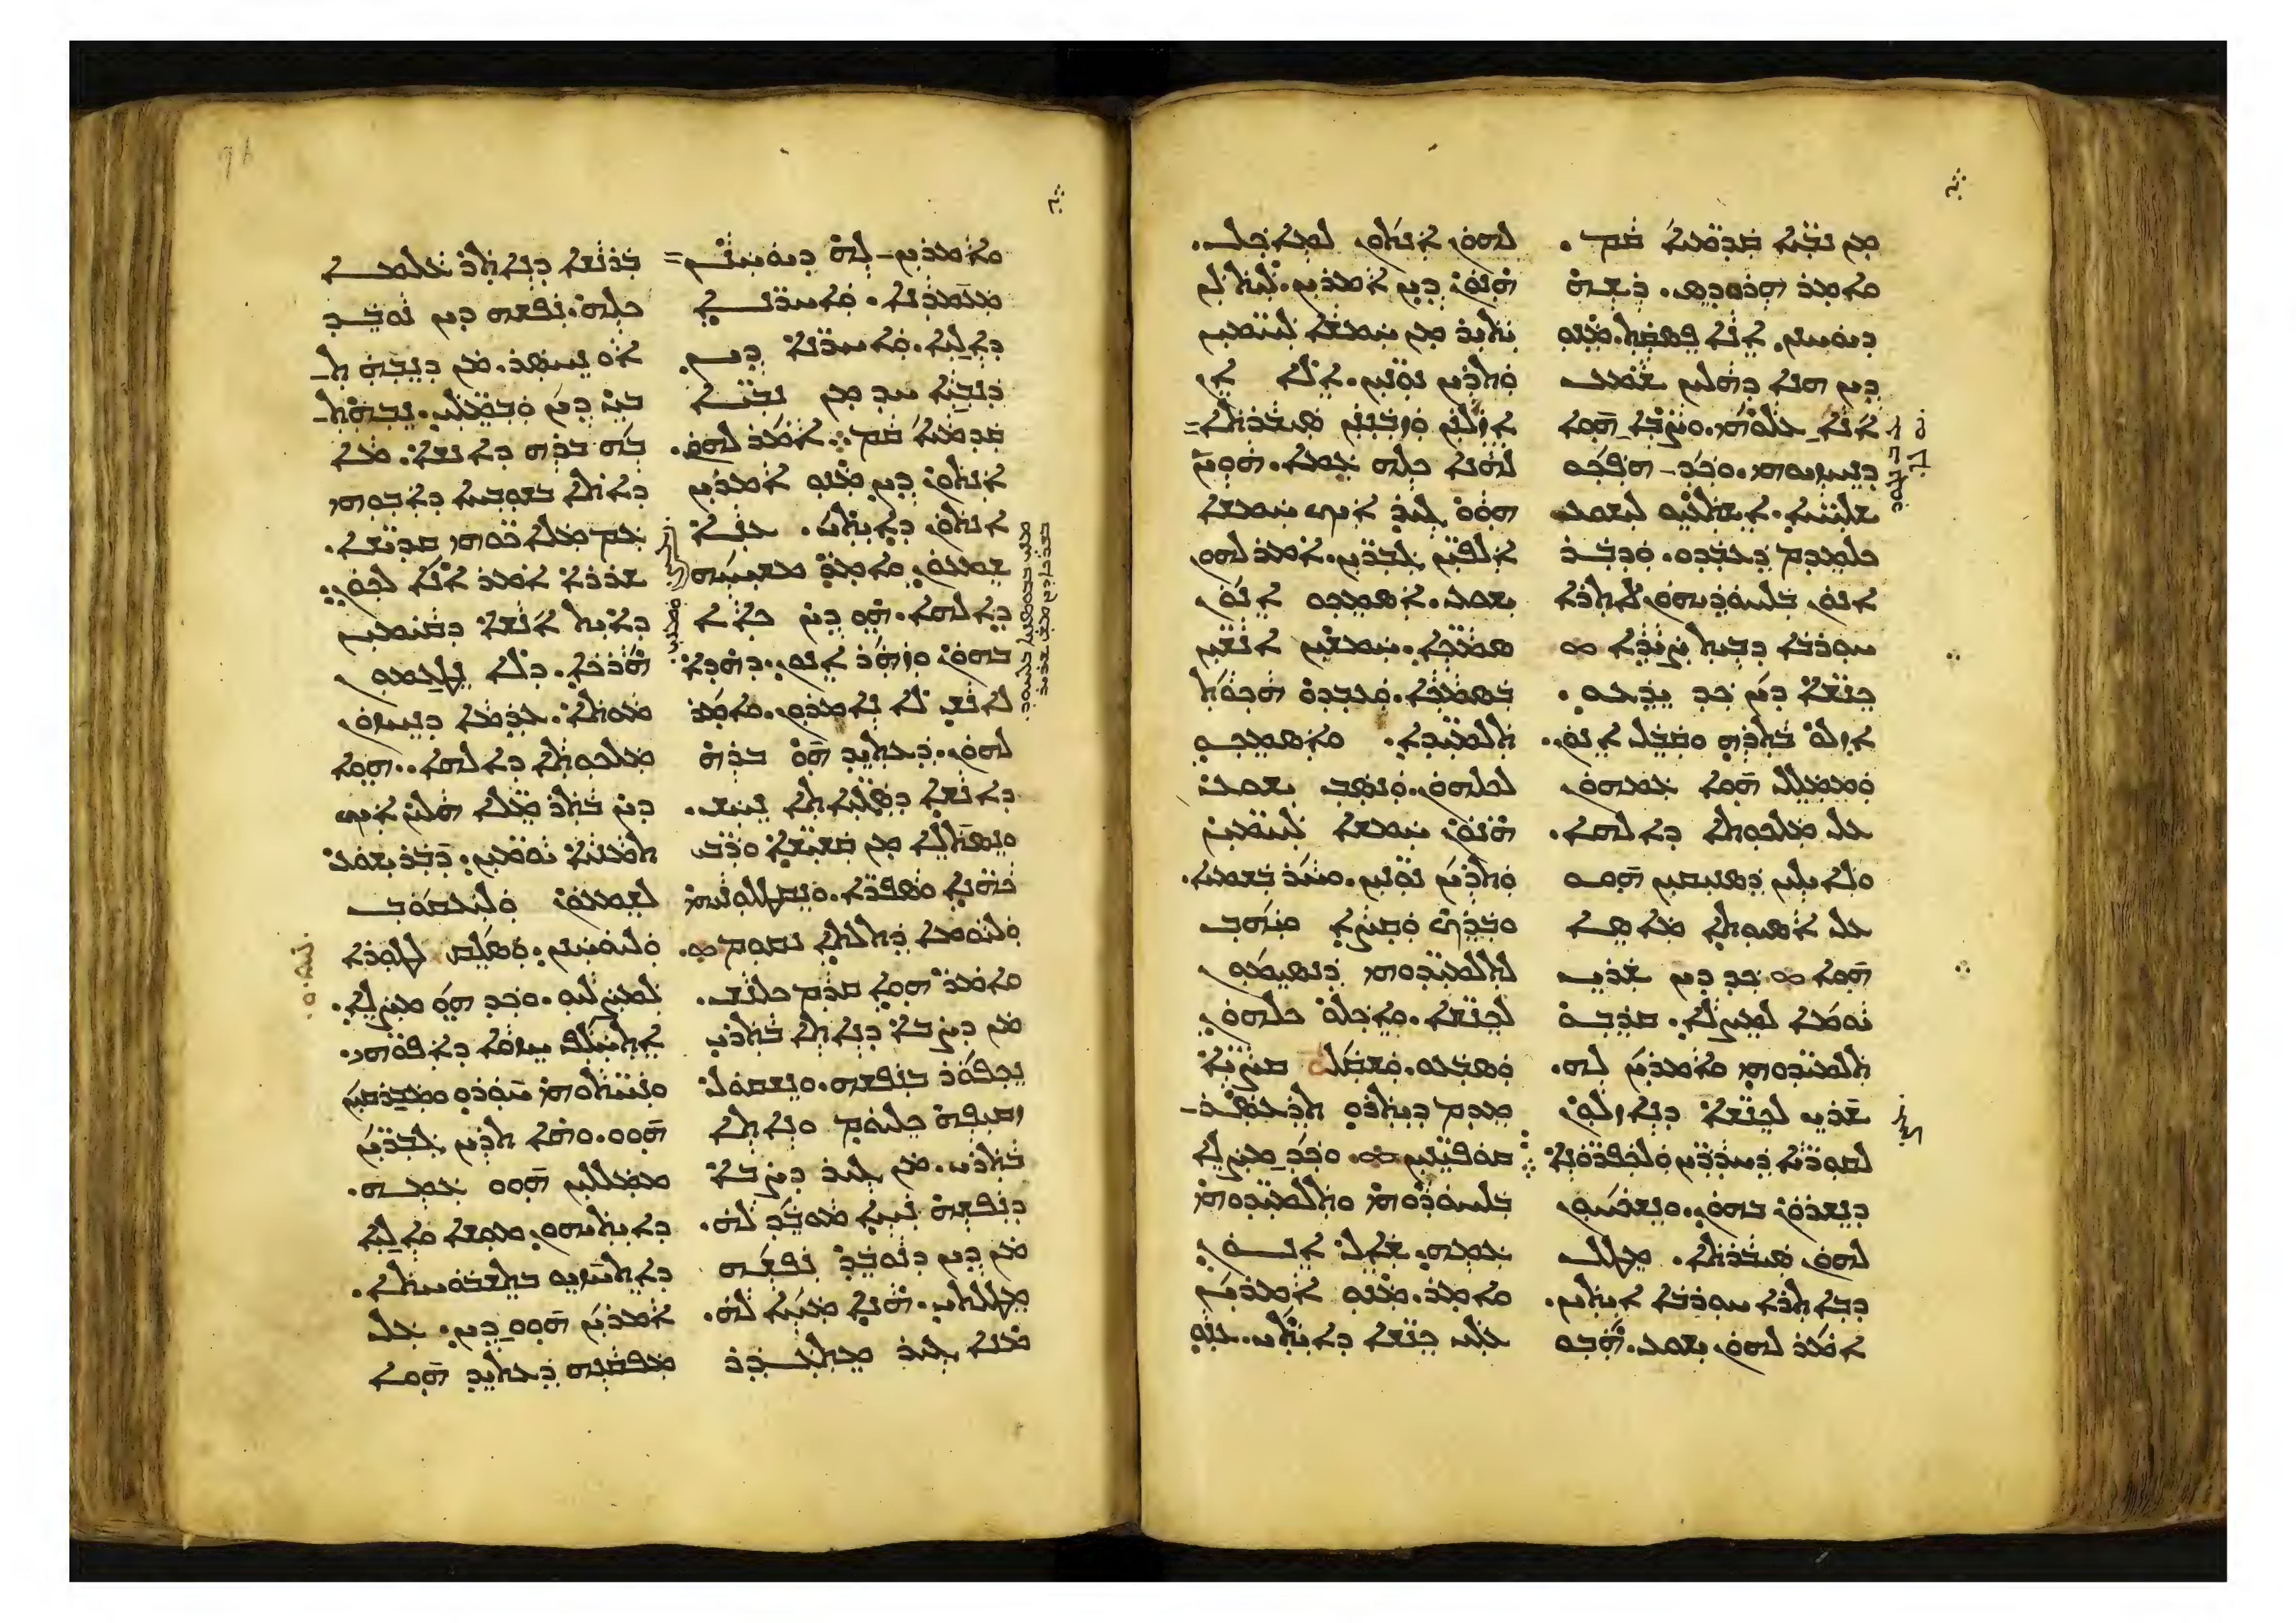 ܡܢ ܢܒܝܐ ܩܕܡܝܐ ܩܡ܂
ܘܐܡܪ ܗܪܘܕܣ܂ ܪܫܗ
ܕܝܘܚܢܢ ܐܢܐ ܦܣܩܬ܂ ܡܢܘ
ܕܝܢ ܗܢܐ ܕܗܠܝܢ ܫܡܥ
ܐܢܐ ܥܠܘܗܝ܂ ܘܨܒܐ ܗܘܐ
ܕܢܚܙܝܘܗܝ܂ ܘܟܕ ܗܦܟܘ
ܫܠܝܚܐ܂ ܐܫܬܥܝܘ ܠܝܫܘܥ
ܟܠܡܕܡ ܕܥܒܕܘ܂ ܘܕܒܪ
ܐܢܘܢ ܒܠܚܘܕܝܗܘܢ ܠܐܬܪܐ
ܚܘܪܒܐ ܕܒܝܬ ܨܝܕܐ
ܟܢܫܐ ܕܝܢ ܟܕ ܝܕܥܘ܂
ܐܙܠܘ ܒܬܪܗ ܘܩܒܠ ܐܢܘܢ܂
ܘܡܡܠܠ ܗܘܐ ܥܡܗܘܢ
ܥܠ ܡܠܟܘܬܐ ܕܐܠܗܐ܂
ܘܠܐܝܠܝܢ ܕܣܢܝܩܝܢ ܗܘܘ
ܥܠ ܐܣܝܘܬܐ ܡܐܣܐ
ܗܘܐ ܟܕ ܕܝܢ ܫܪܝ
ܝܘܡܐ ܠܡܨܠܐ܂ ܩܪܒܘ
ܬܠܡܝܕܘܗܝ ܘܐܡܪܝܢ ܠܗ܂
ܫܪܝ ܠܟܢܫܐ ܕܢܐܙܠܘܢ
ܠܩܘܪܝܐ ܕܚܕܪܝܢ ܘܠܟܦܪܘܢܐ
ܕܢܫܪܘܢ ܒܗܘܢ܂ ܘܢܫܟܚܘܢ
ܠܗܘܢ ܣܝܒܪܬܐ܂ ܡܛܠ
ܕܒܐܬܪܐ ܚܘܪܒܐ ܐܝܬܝܢ܂
ܐܡܪ ܠܗܘܢ ܝܫܘܥ܂ ܗܒܘ
ܠܗܘܢ ܐܢܬܘܢ ܠܡܐܟܠ܂
ܗܢܘܢ ܕܝܢ ܐܡܪܝܢ܂ ܠܝܬ ܠܢ
ܝܬܝܪ ܡܢ ܚܡܫܐ ܠܚܡܝܢ
ܘܬܪܝܢ ܢܘܢܝܢ܂ ܐܠܐ ܐܢ
ܐܙܠܢ ܘܙܒܢܢ ܣܝܒܪܬܐ
ܠܗܢܐ ܟܠܗ ܥܡܐ܂ ܗܘܝܢ
ܗܘܘ ܓܝܪ ܐܝܟ ܚܡܫܐ
ܐܠܦܝܢ ܓܒܪܝܢ܂ ܐܡܪ ܠܗܘܢ
ܝܫܘܥ܂ ܐܣܡܟܘ ܐܢܘܢ
ܣܡܟܐ܂ ܚܡܫܝܢ ܐܢܫܝܢ
ܒܣܡܟܐ܂ ܘܥܒܕܘ ܗܟܘܬ
ܬܠܡܝܕܐ܂ ܘܐܣܡܟܘ
ܠܟܠܗܘܢ܂ ܘܢܣܒ ܝܫܘܥ
ܗܢܘܢ ܚܡܫܐ ܠܚܡܝܢ
ܘܬܪܝܢ ܢܘܢܝܢ܂ ܘܚܪ ܒܫܡܝܐ܂
ܘܒܪܟ ܘܩܨܐ ܘܝܗܒ
ܠܬܠܡܝܕܘܗܝ ܕܢܣܝܡܘܢ
ܠܟܢܫܐ܂ ܘܐܟܠܘ ܟܠܗܘܢ
ܘܣܒܥܘ܂ ܘܫܩܠܘ ܩܨܝܐ
ܡܕܡ ܕܝܬܪܘ ܬܪܥܣܪ
ܩܘܦܝܢܝܢ܂ ܘܟܕ ܡܨܠܐ
ܒܠܚܘܕܘܗܝ ܘܬܠܡܝܕܘܗܝ
ܥܡܗ܂ ܫܐܠ ܐܢܘܢ
ܘܐܡܪ܂ ܡܢܘ ܐܡܪܝܢ
ܥܠܝ ܟܢܫܐ ܕܐܝܬܝ܂ ܥܢܘ
ܘܐܡܪܝܢ ܠܗ ܕܝܘܚܢܢ
ܡܥܡܕܢܐ܂ ܘܐܚܪܢܐ
ܕܐܠܝܐ܂ ܘܐܚܪܢܐ ܕܝܢ
ܕܢܒܝܐ ܚܕ ܡܢ ܢܒܝܐ
ܩܕܡܝܐ ܩܡ܂ ܐܡܪ ܠܗܘܢ܂
ܐܢܬܘܢ ܕܝܢ ܡܢܘ ܐܡܪܝܢ
ܐܢܬܘܢ ܕܐܝܬܝ܂ ܥܢܐ
ܫܡܥܘܢ ܘܐܡܪ ܡܫܝܚܗ
ܕܐܠܗܐ܂ ܗܘ ܕܝܢ ܟܐܐ
ܒܗܘܢ ܘܙܗܪ ܐܢܘܢ܂ ܕܗܕܐ
ܠܐܢܫ ܠܐ ܢܐܡܪܘܢ܂ ܘܐܡܪ
ܠܗܘܢ܂ ܕܥܬܝܕ ܗܘ ܒܪܗ
ܕܐܢܫܐ ܕܣܓܝܐܬܐ ܢܚܫ܂
ܘܢܣܬܠܐ ܡܢ ܩܫܝܫܐ ܘܪܒܝ
ܟܗܢܐ ܘܣܦܪܐ܂ ܘܢܩܛܠܘܢܝܗܝ
ܘܠܝܘܡܐ ܕܬܠܬܐ ܢܩܘܡ܂
ܘܐܡܪ ܗܘܐ ܩܕܡ ܟܠܢܫ܂
ܡܢ ܕܨܒܐ ܕܢܐܬܐ ܒܬܪܝ
ܢܟܦܘܪ ܒܢܦܫܗ܂ ܘܢܫܩܘܠ
ܙܩܝܦܗ ܟܠܝܘܡ ܘܢܐܬܐ
ܒܬܪܝ܂ ܡܢ ܓܝܪ ܕܨܒܐ
ܕܢܦܫܗ ܢܚܐ ܡܘܒܕ ܠܗ܂
ܡܢ ܕܝܢ ܕܢܘܒܕ ܢܦܫܗ
ܡܛܠܬܝ܂ ܗܢܐ ܡܚܐ ܠܗ܂
ܡܢܐ ܓܝܪ ܡܬܥܕܪ
ܒܪܢܫܐ ܕܢܐܬܪ ܥܠܡܐ
ܟܠܗ܂ ܢܦܫܗ ܕܝܢ ܢܘܒܕ
ܐܘ ܢܚܣܪ܂ ܡܢ ܕܢܒܗܬ
ܒܝ ܕܝܢ ܘܒܡܠܝ܂ ܢܒܗܬ
ܒܗ ܒܪܗ ܕܐܢܫܐ܂ ܡܐ
ܕܐܬܐ ܒܫܘܒܚܐ ܕܐܒܘܗܝ
ܥܡ ܡܠܐܟܘܗܝ ܩܕܝܫܐ܂
ܫܪܪܐ ܐܡܪ ܐܢܐ ܠܟܘܢ܂
ܕܐܝܬ ܐܢܫܐ ܕܩܝܡܝܢ
ܗܪܟܐ܂ ܕܠܐ ܢܛܥܡܘܢ
ܡܘܬܐ܂ ܥܕܡܐ ܕܢܚܙܘܢ
ܡܠܟܘܬܐ ܕܐܠܗܐ܂ ܗܘܐ
ܕܝܢ ܒܬܪ ܡܠܐ ܗܠܝܢ ܐܝܟ
ܬܡܢܝܐ ܝܘܡܝܢ܂ ܕܒܪ ܝܫܘܥ
ܠܫܡܥܘܢ ܘܠܝܥܩܘܒ
ܘܠܝܘܚܢܢ܂ ܘܣܠܩ ܠܛܘܪܐ
ܠܡܨܠܝܘ܂ ܘܟܕ ܗܘ ܡܨܠܐ܂
ܐܬܚܠܦ ܚܙܘܐ ܕܐܦܘܗܝ܂
ܘܢܚܬܘܗܝ ܚܘܪܘ ܘܡܒܪܩܝܢ
ܗܘܘ܂ ܘܗܐ ܬܪܝܢ ܓܒܪܝܢ
ܡܡܠܠܝܢ ܗܘܘ ܥܡܗ܂
ܕܐܝܬܝܗܘܢ ܡܘܫܐ ܘܐܠܝܐ
ܕܐܬܚܙܝܘ ܒܬܫܒܘܚܬܐ܂
ܐܡܪܝܢ ܗܘܘ ܕܝܢ܂ ܥܠ
ܡܦܩܢܗ ܕܥܬܝܕ ܗܘܐ